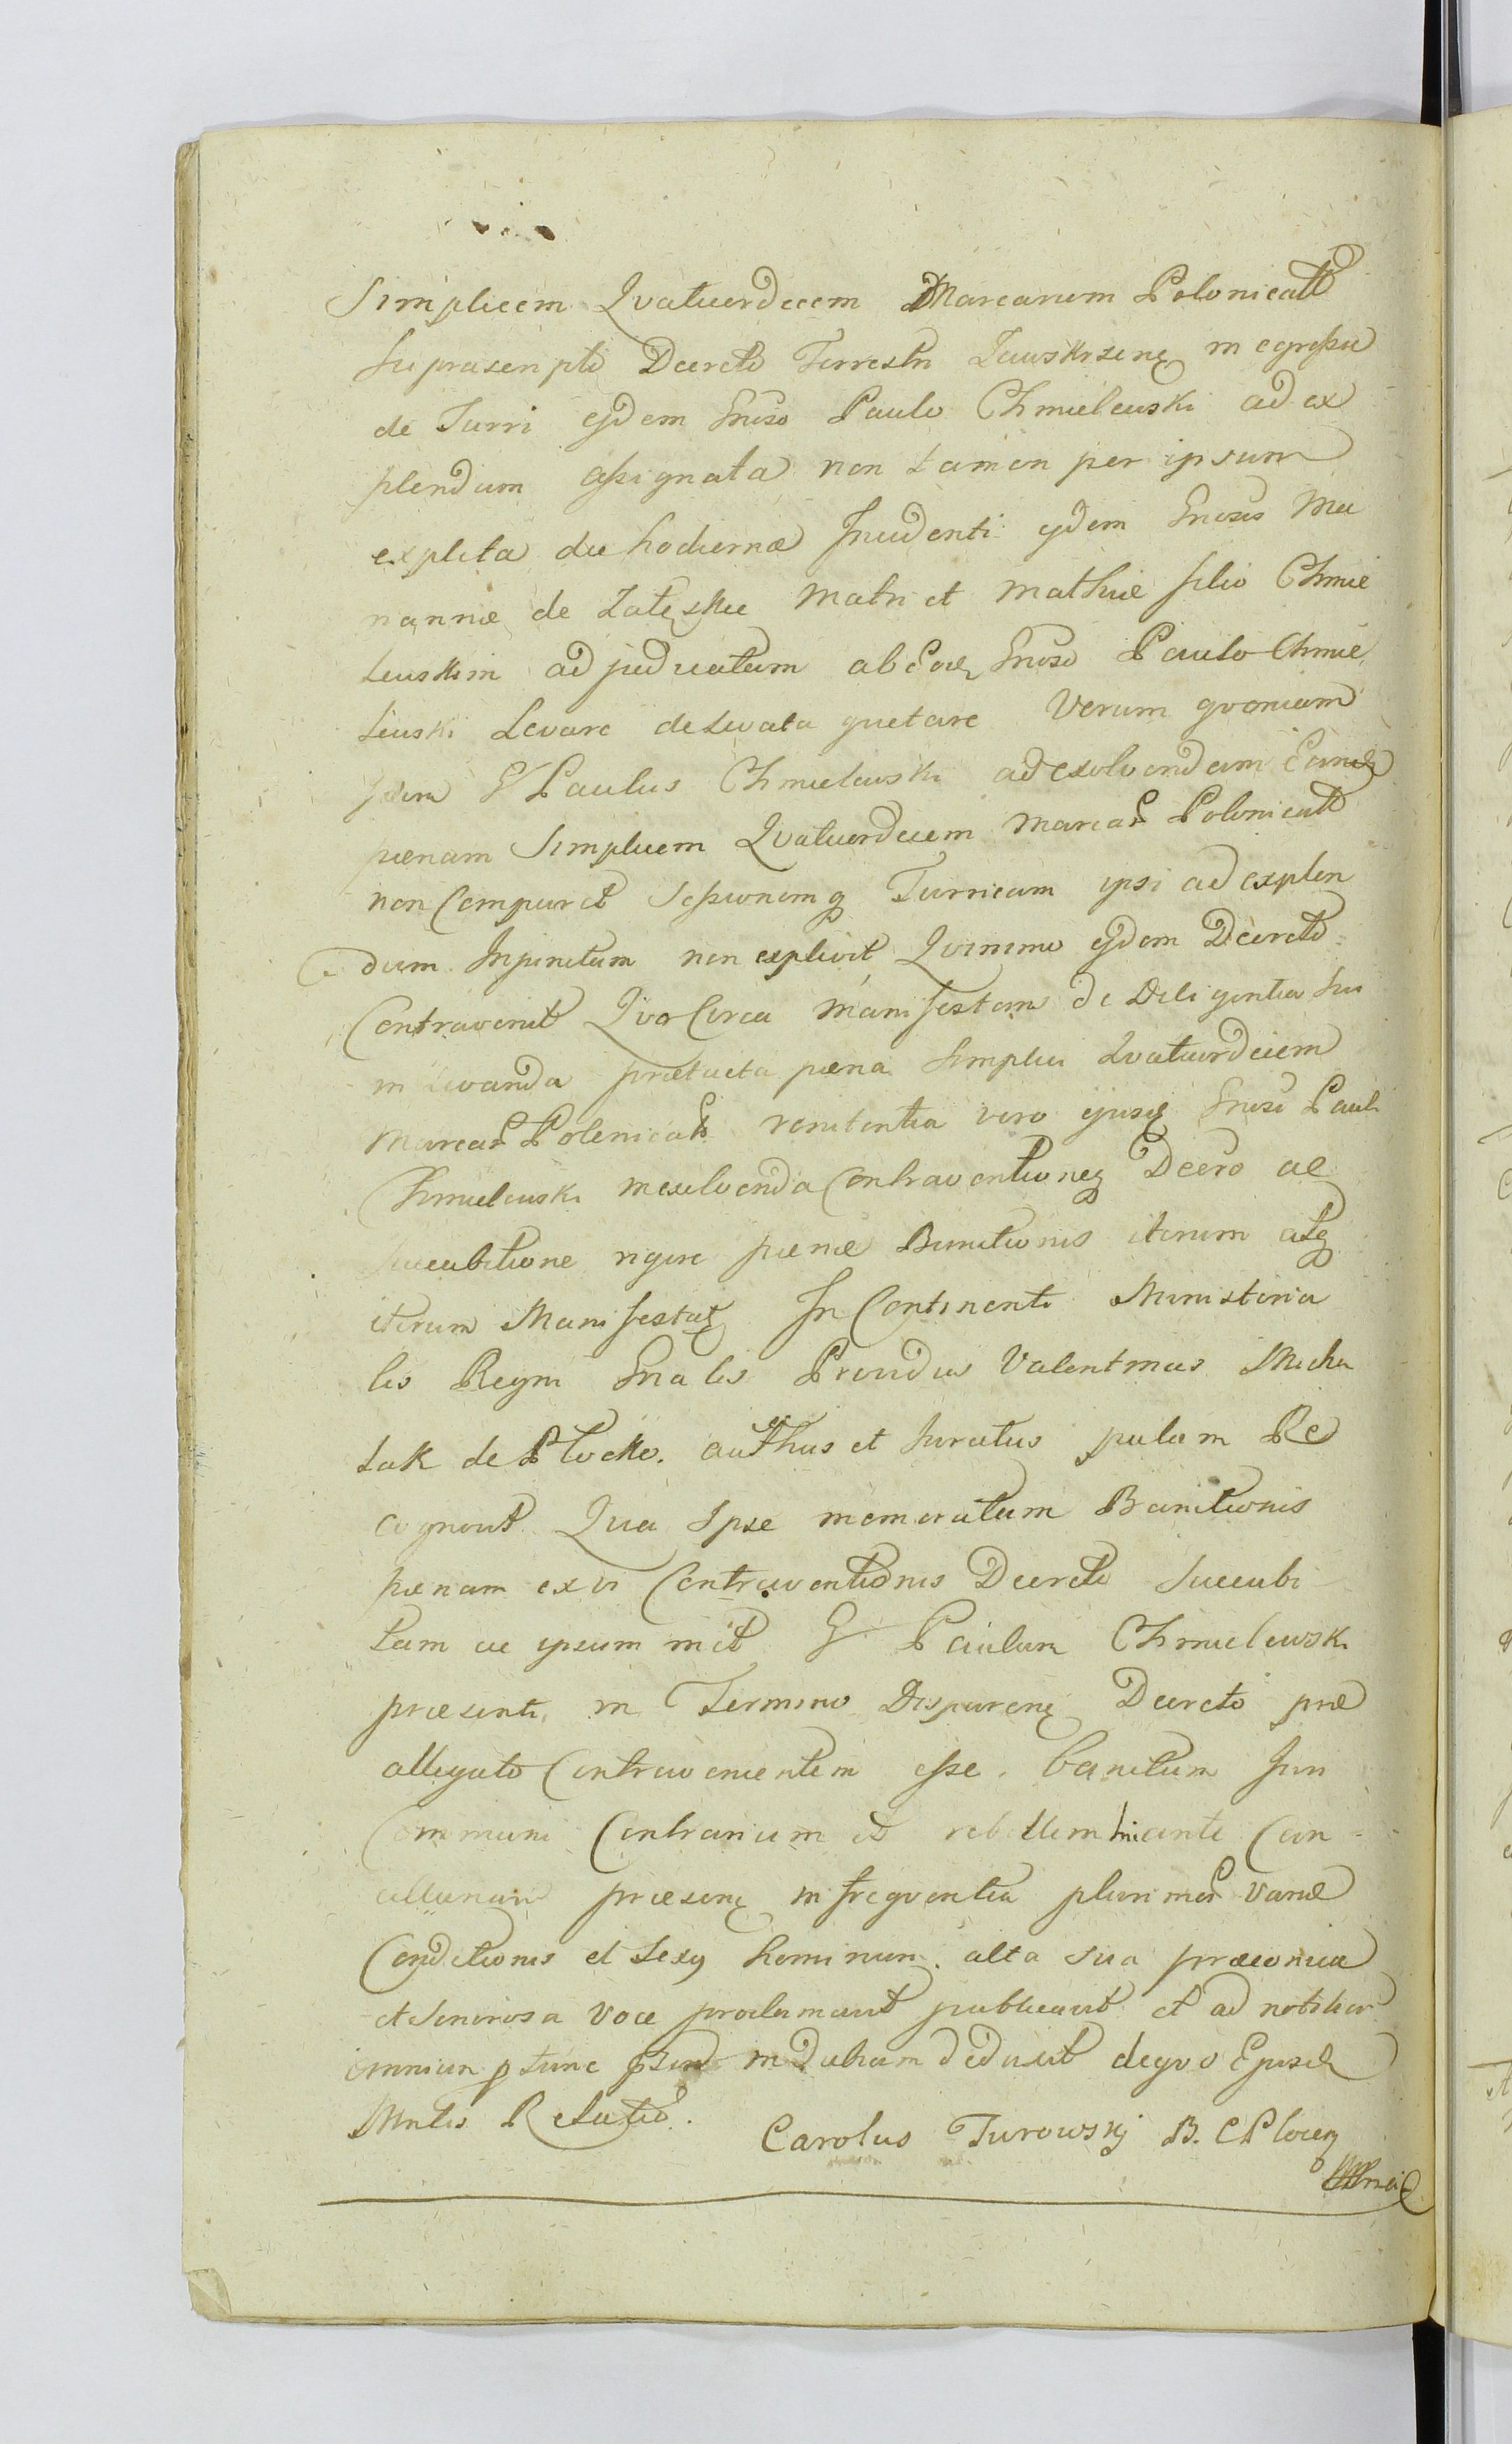 Simplicem Qvatuordecem Marcarum Polonicall
suprascripto Decreto Terrestri Zawskrzenę in egressu
de Turri ejdem Gnoso Paulo Chmielewski ad ex
plendum assignata non tamen per ipsum
expleta die hodierna Incidenti ejdem Gnosis Ma
riannæ de Zaleskie Matri et Mathiæ filio Chmie
lewskim adjudicatam ab eodem Gnoso Paulo Chmie
lewski Levare de levata quetare Verum qvoniam
idem G Paulus Chmielewski ad exolvendam Eandę
pœnam Simplicem Qvatuordecem Marcar Polonicall
non Comparuit Sessionemq Turricam ipsi ad explen
dum Injunctam non explevit Qvinimo ejdem Decreto
Contravenit Qvo Circa Manifestam de Diligentia sui
in levanda prætacta pœna Simplici Qvatuordecem
Marcar Polonicalr renitentia vero ejusdę Gnosi Pauli
Chmielewski in exolvenda Contraventioneq Decro ac
succubitione rigore pœnæ Banitionis iterum atq
iterum Manifestatę In Continenti Ministeria
lis Regni Gnalis Providus Valentinus Micha
lak de Plocko. authus et Juratus palam Re
cognovit Qvia Ipse memoratam Banitionis
pœnam ex vi Contraventionis Decreto succubi
tam ac ipsum mct G Paulum Chmielewski
præsenti in Termino Disparenę Decreto præ
allegato Contravenientem esse. banitum Juri
Communi Contrarium et rebellem hic ante Can
cellariam præsenę in freqventia plurimor variæ
Conditionis et sexy hominum. alta sua præconica
et Sonorosa voce proclamavit publicavit et ad notitiam
omnium p tunc in Dubiam deduxit de qvo Ejusdę
Mntlis Relatio.
Carolus Turowskj B. C Plocen